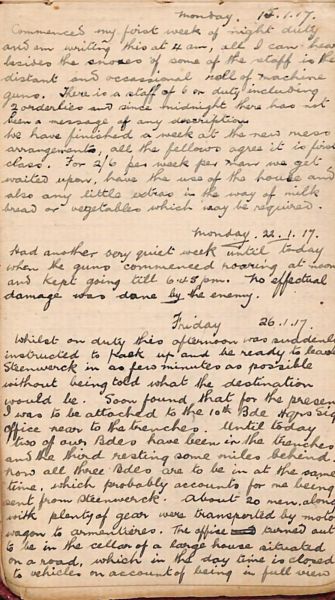 Monday. 15.1.17.
Commenced my first week of night duty
and am writing this at 4 am, all I can hear
besides the snores of some of the staff is the
distant and occassional roll of machine
guns. There is a staff of 6 on duty including
2 orderlies and since midnight there has not
been a message of any description.
We have finished a week at the new mess
arrangements, all the fellows agree it is first
class. For 2/6 per week per man we get
waited upon, have the use of the house and
also any little extras in the way of milk
bread or vegetables which may be required.
Monday. 22.1.17.
Had another very quiet week until today
when the guns commenced roaring at noon
and kept going till 6.45 pm. No effectual
damage was done by the enemy.
Friday 26.1.17.
Whilst on duty this afternoon was suddenly
instructed to pack up and be ready to leave
Steenwerck in as few minutes as possible
without being told what the destination
would be. Soon found that for the present
I was to be attached to the 10th Bde Hqrs Sig
office near to the trenches. Until today
two of our Bdes have been in the trenches
and the third resting some miles behind.
Now all three Bdes are to be in at the same
time, which probably accounts for me being
sent from Steenwerck. About 20 men, along
with plenty of gear were transported by motor
wagon to Armentieres. The office turned out
to be in the cellar of a large house situated
on a road, which in the day time is closed
to vehicles on account of being in full view